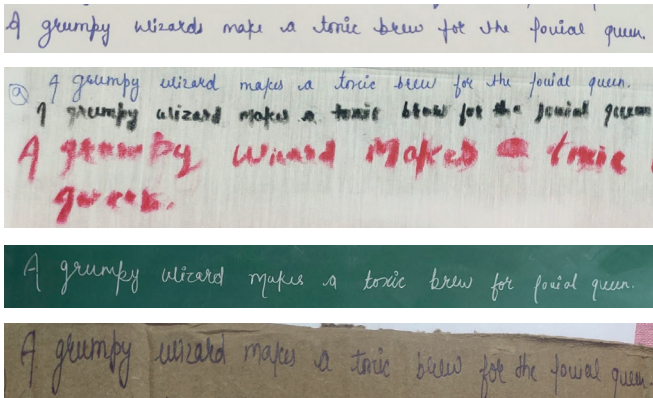 A grumpy wizards make a tonic brew for the jovial queen.
a A grumpy wizard makes a toxic brew for the jovial queen.
A grumpy wizard makes a toxic brew for the jovial queen
A grumpy Wizard Makes a toxic
queen.
A grumpy wizard makes a toxic brew for jovial queen.
A grumpy wizard makes a toxic brew for the jovial queen.